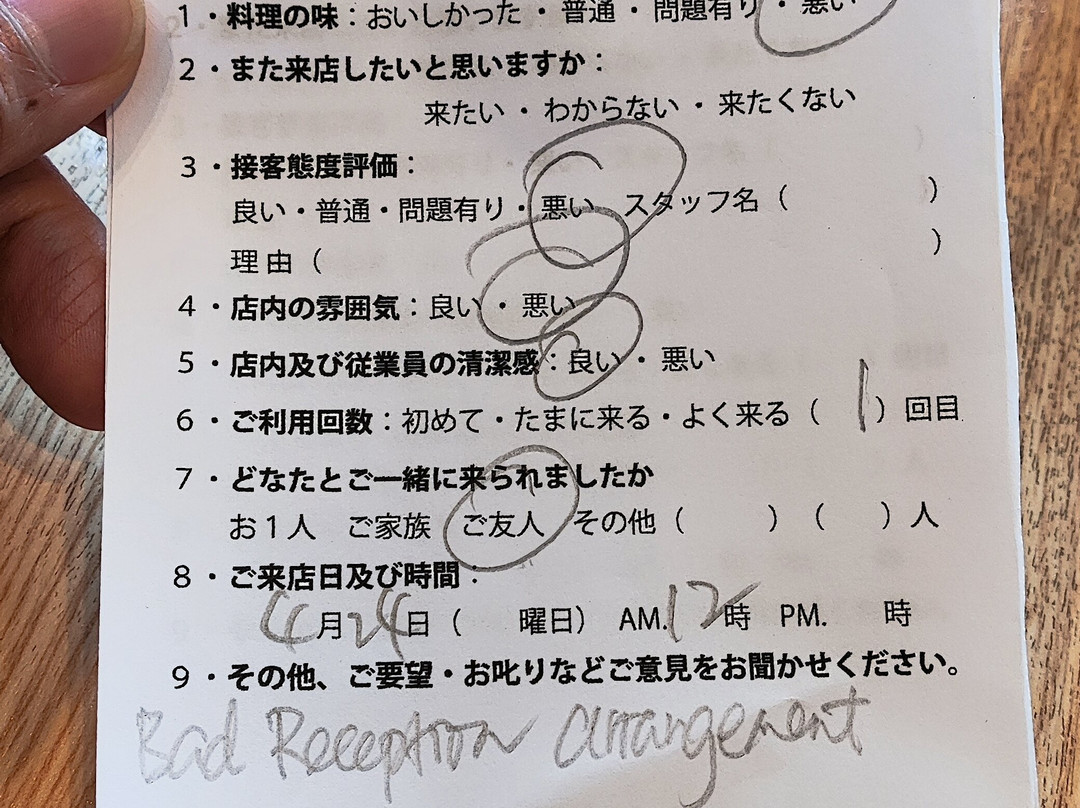 1・料理の味：おいしかった ・ 普通 ・ 問題有り ・ 悪い
2・また来店したいと思いますか：
来たい ・ わからない ・ 来たくない
3・接客態度評価：
良い・普通・問題有り・悪い スタッフ名（ ）
理由（ ）
4・店内の雰囲気：良い ・ 悪い
5・店内及び従業員の清潔感：良い ・ 悪い
6・ご利用回数：初めて・たまに来る・よく来る（ 1 ）回目
7・どなたとご一緒に来られましたか
お1人 ご家族 ご友人 その他（ ）（ ）人
8・ご来店日及び時間：
4月24日（ 曜日） AM.12時 PM. 時
9・その他、ご要望・お叱りなどご意見をお聞かせください。
Bad Reception arrangement